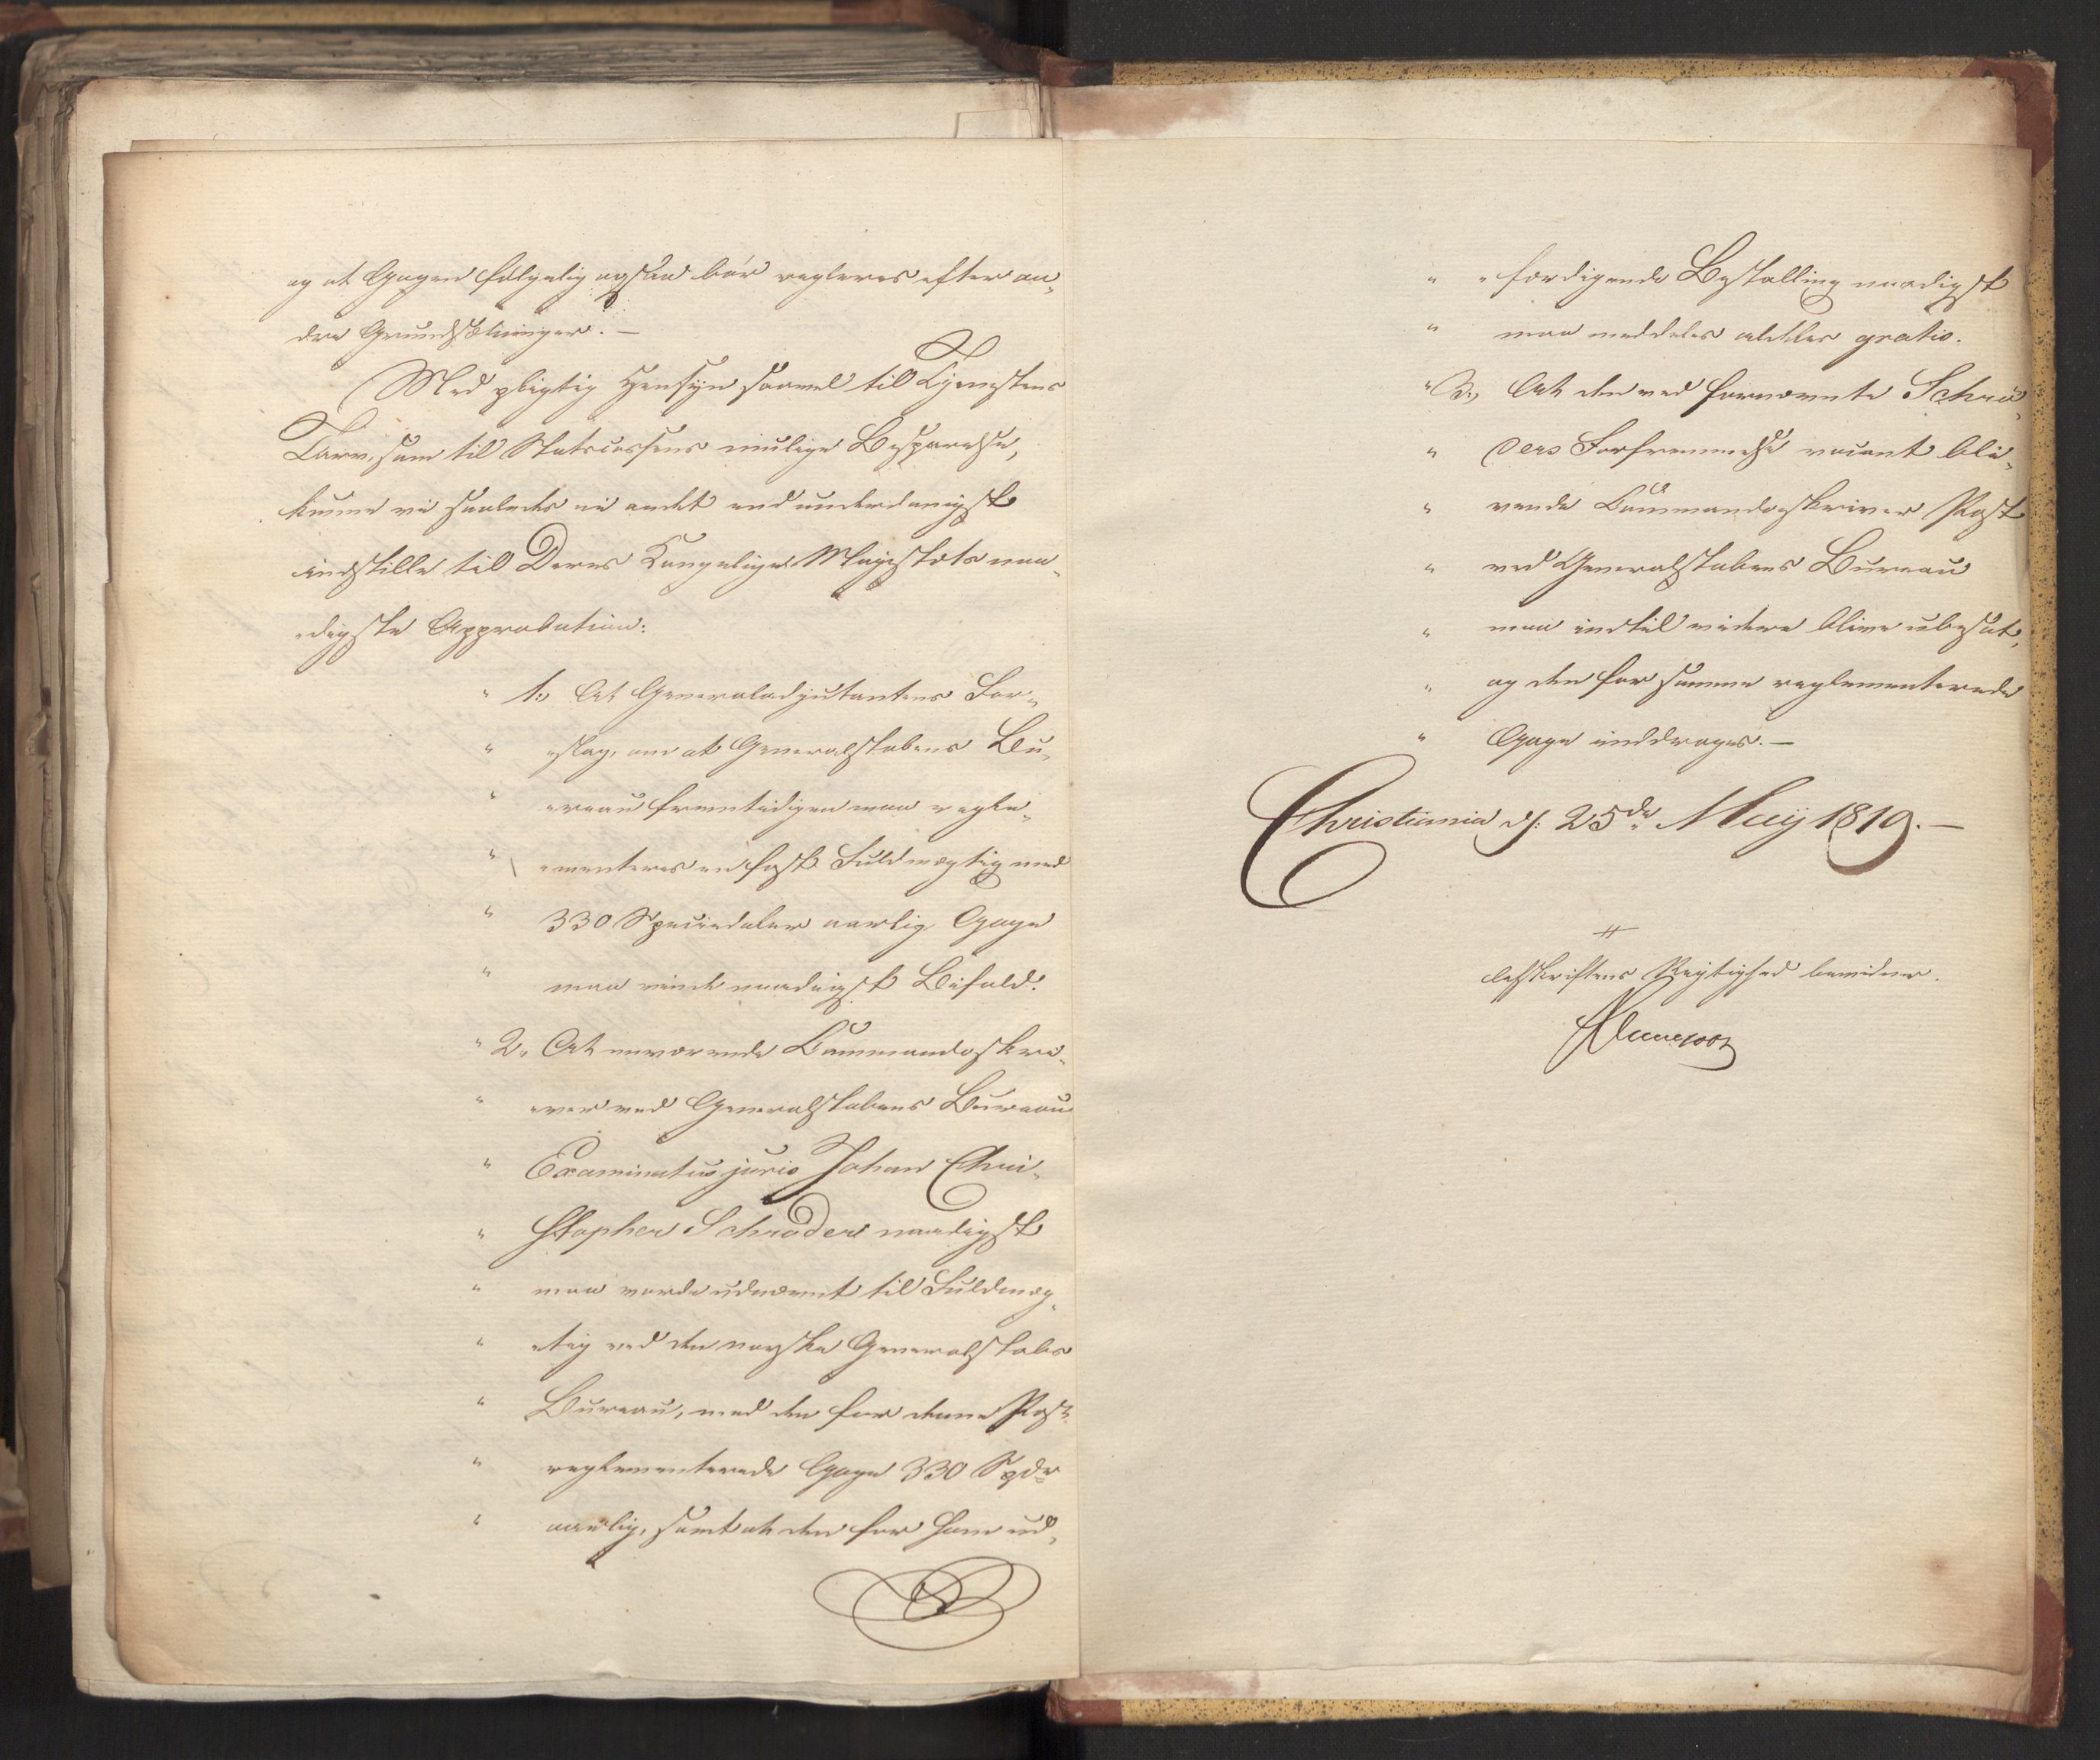 og at Gagen følgelig ogsaa bør regleres efter an„
dre Grundsætninger. —
Med pligtig Hensyn saavel til Tjenestens
Tarv, som til Statscassens mulige Besparelse,
kunne vi saaledes ei andet end underdanigst
indstille til Deres Kongelige Majestæts naa„
„digste Approbation:
„ 1. At Generaladjutantens For„
„ „slag, om at Generalstabens Bu„
„ „reau fremtidigen maa regle„
„ „menteres en fast Fuldmægtig med
„ 330 Speciedaler aarlig Gage
„ maa vinde naadigst Bifald.
„ 2. At nuværende Commandoskri„
„ „ver ved Generalstabens Bureau
„ Examinatus juris Johan Chri„
„ stopher Schrøder naadigst
„ maa vorde udnævnt til Fuldmæg„
„ „tig ved den norske Generalstabs
„ Bureau, med den for denne Post
„ reglementerede Gage 330 Spdr
„ aarlig, samt at den for ham ud„
„ „færdigende Bestalling naadigst
„ maa meddeles aldeles gratis.
„ 3. At den ved fornævnte Schrø„
„ ders Forfremmelse vacant bli„
„ vende Commandoskriver Post
„ ved Generalstabens Bureau
„ maa indtil videre blive ubesat,
„ og den for samme reglementerede
„ Gage inddrages. —
Christiania d: 25de Maij 1819. —
Afskriftens Rigtighed bevidner.